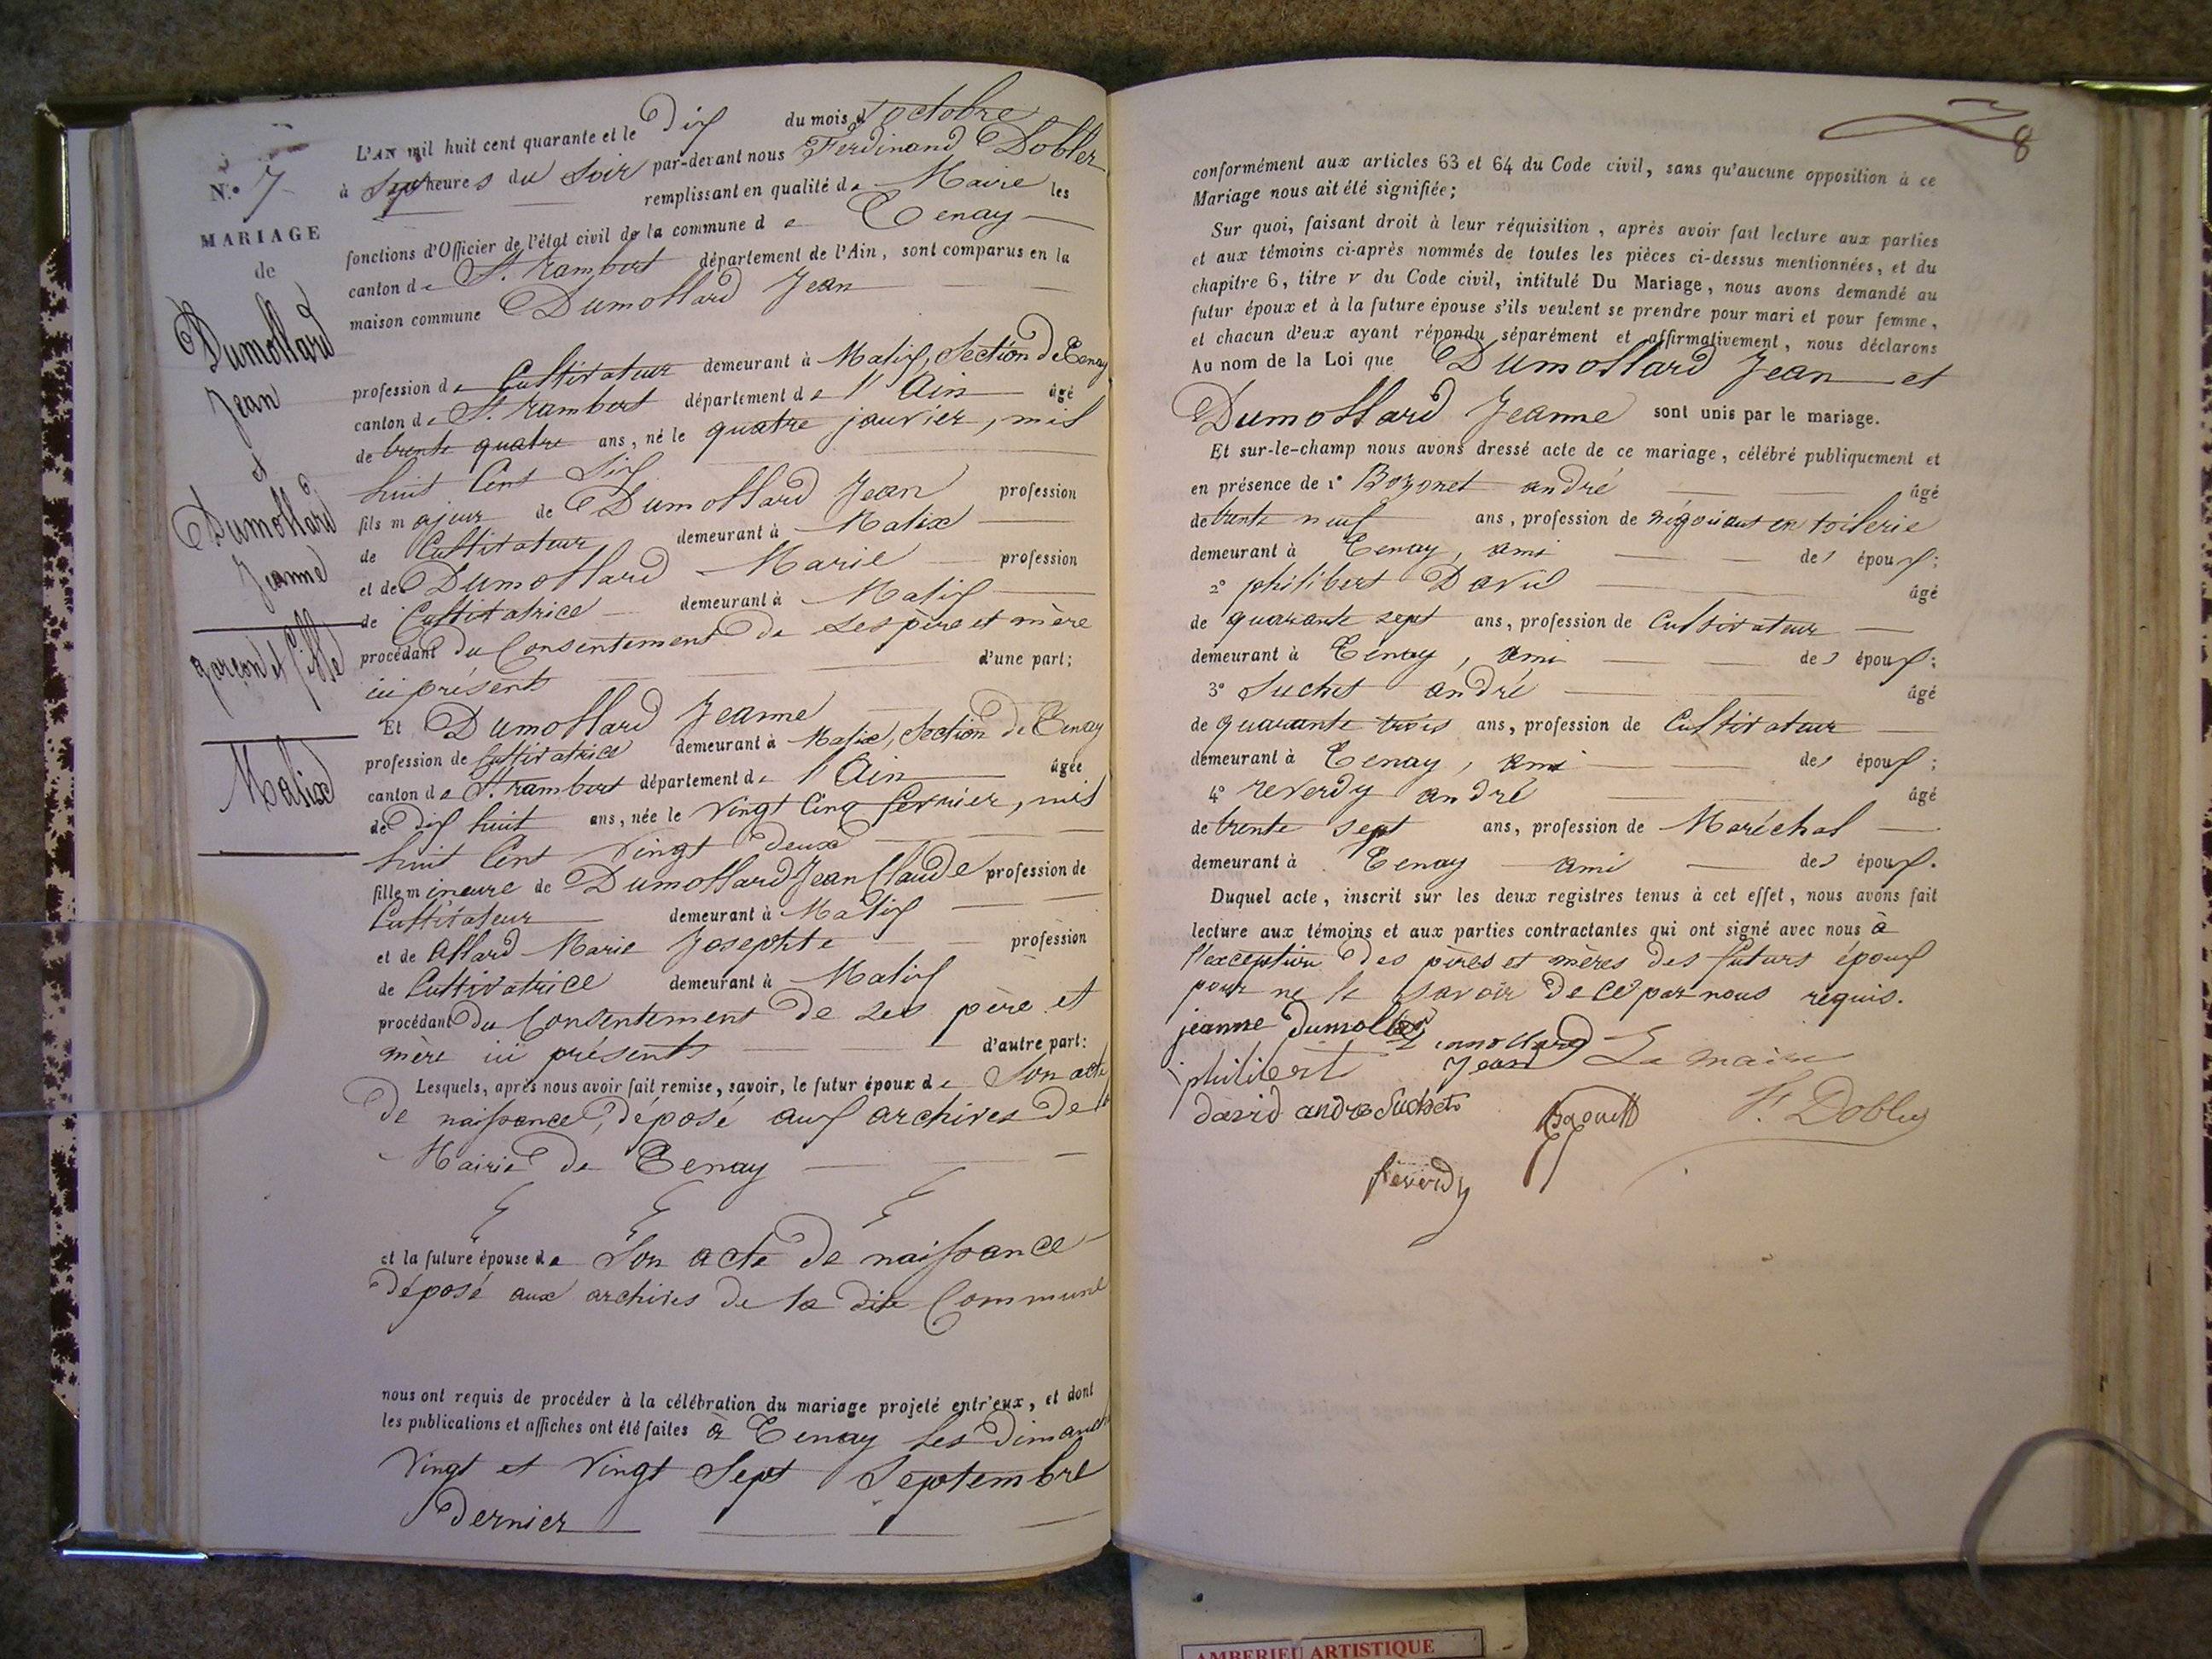 N.° 7
MARIAGE
de
Dumollard
Jean
et
Dumollard
Jeanne
garçon et fille
Malix
L'AN mil huit cent quarante et le dix du mois d'octobre
à Sept heures du Soir par-devant nous Ferdinand Dobler
remplissant en qualité de Maire les
fonctions d'Officier de l'état civil de la commune de Tenay
canton de St. rambert département de l'Ain, sont comparus en la
maison commune Dumollard Jean
profession de Cultivateur demeurant à Malix, Section de Tenay
canton de St. rambert département de l'Ain âgé
de trente quatre ans, né le quatre janvier, mil
huit Cent Six
fils majeur de Dumollard Jean profession
de Cultivateur demeurant à Malix
et de Dumollard Marie profession
de Cultivatrice demeurant à Malix
procédant du Consentement de Ses père et mère
ici présents d'une part;
Et Dumollard Jeanne
profession de Cultivatrice demeurant à Malix, Section de Tenay
canton de St. rambert département de l'Ain âgée
de dix huit ans, née le vingt Cinq fevrier, mil
huit Cent vingt deux
fille mineure de Dumollard Jean Claude profession de
Cultivateur demeurant à Malix
et de Allard Marie Josephte profession
de Cultivatrice demeurant à Malix
procédant du Consentement de Ses père et
mère ici présents d'autre part:
Lesquels, après nous avoir fait remise, savoir, le futur époux de Son acte
de naissance, déposé aux archives de la
Mairie de Tenay
et la future épouse de Son acte de naissance
déposé aux archives de la dite Commune
nous ont requis de procéder à la célébration du mariage projeté entr'eux, et dont
les publications et affiches ont été faites à Tenay les dimanches
vingt et vingt Sept Septembre
dernier
8
conformément aux articles 63 et 64 du Code civil, sans qu'aucune opposition à ce
Mariage nous ait été signifiée;
Sur quoi, faisant droit à leur réquisition, après avoir fait lecture aux parties
et aux témoins ci-après nommés de toutes les pièces ci-dessus mentionnées, et du
chapitre 6, titre v du Code civil, intitulé Du Mariage, nous avons demandé au
futur époux et à la future épouse s'ils veulent se prendre pour mari et pour femme,
et chacun d'eux ayant répondu séparément et affirmativement, nous déclarons
Au nom de la Loi que Dumollard Jean et
Dumollard Jeanne sont unis par le mariage.
Et sur-le-champ nous avons dressé acte de ce mariage, célébré publiquement et
en présence de 1° Bozonet andré âgé
de trente neuf ans, profession de négociant en toilerie
demeurant à Tenay, ami des époux;
2° philibert David âgé
de quarante sept ans, profession de Cultivateur
demeurant à Tenay, ami des époux;
3° Suchet andré âgé
de quarante trois ans, profession de Cultivateur
demeurant à Tenay, ami des époux;
4° reverdy andré âgé
de trente sept ans, profession de Maréchal
demeurant à Tenay ami des époux.
Duquel acte, inscrit sur les deux registres tenus à cet effet, nous avons fait
lecture aux témoins et aux parties contractantes qui ont signé avec nous à
l'exception des pères et mères des futurs époux
pour ne le savoir de ce par nous requis.
jeanne dumollard
Jean Le maire
philibert
david andre Suchet F. Dobler
Reverdy
AMBERIEU ARTISTIQUE